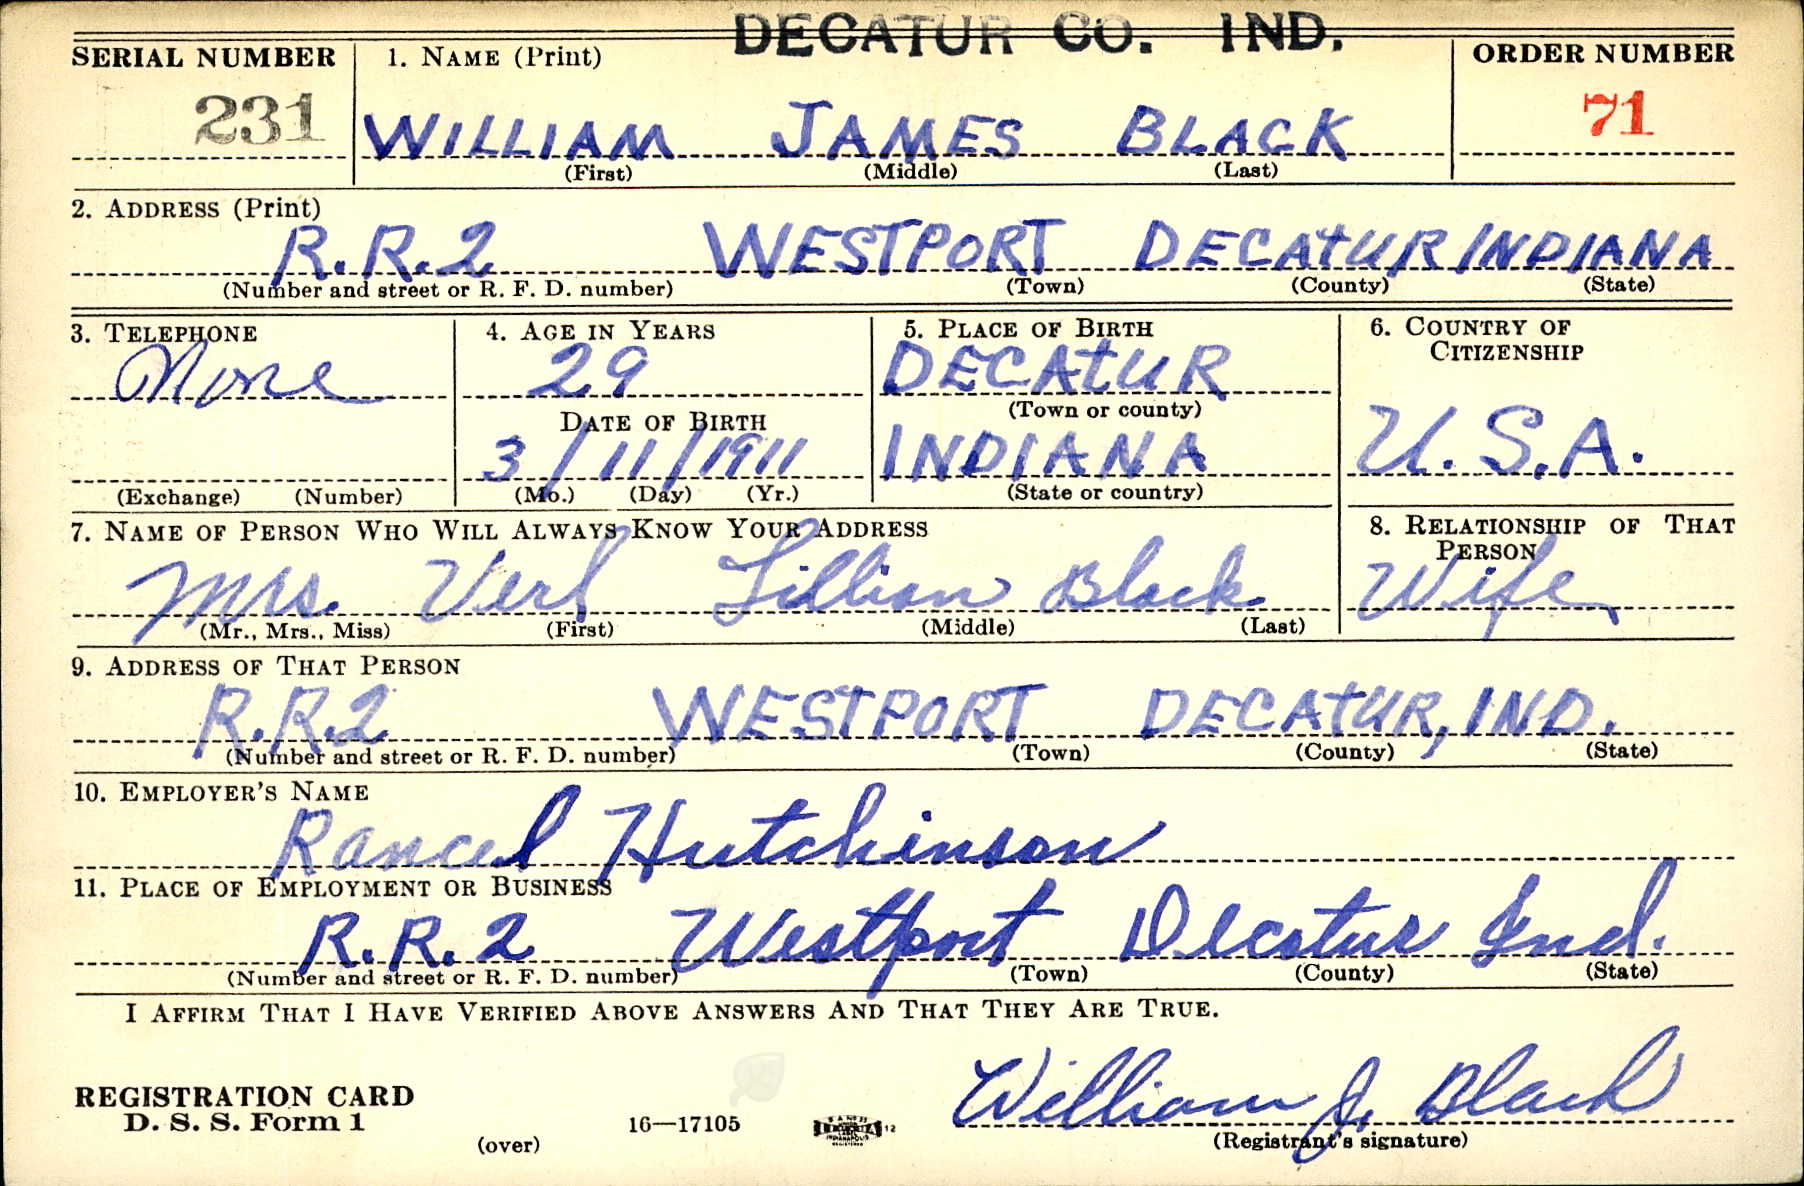 DECATUR CO. IND.
SERIAL NUMBER 1. NAME (Print) ORDER NUMBER
231 WILLIAM JAMES BLACK 71
(First) (Middle) (Last)
2. ADDRESS (Print)
R.R.2 WESTPORT DECATUR INDIANA
(Number and street or R. F. D. number) (Town) (County) (State)
3. TELEPHONE 4. AGE IN YEARS 5. PLACE OF BIRTH 6. COUNTRY OF
CITIZENSHIP
None 29 DECATUR
(Town or county)
DATE OF BIRTH
3/11/1911 INDIANA U.S.A.
(Exchange) (Number) (Mo.) (Day) (Yr.) (State or country)
7. NAME OF PERSON WHO WILL ALWAYS KNOW YOUR ADDRESS 8. RELATIONSHIP OF THAT
PERSON
Mrs. Verl Lillian Black Wife
(Mr., Mrs., Miss) (First) (Middle) (Last)
9. ADDRESS OF THAT PERSON
R.R.2 WESTPORT DECATUR, IND.
(Number and street or R. F. D. number) (Town) (County) (State)
10. EMPLOYER'S NAME
Rancel Hutchinson
11. PLACE OF EMPLOYMENT OR BUSINESS
R.R.2 Westport Decatur Ind.
(Number and street or R. F. D. number) (Town) (County) (State)
I AFFIRM THAT I HAVE VERIFIED ABOVE ANSWERS AND THAT THEY ARE TRUE.
William J. Black
REGISTRATION CARD
D. S. S. Form 1 16—17105 12
(over) (Registrant's signature)